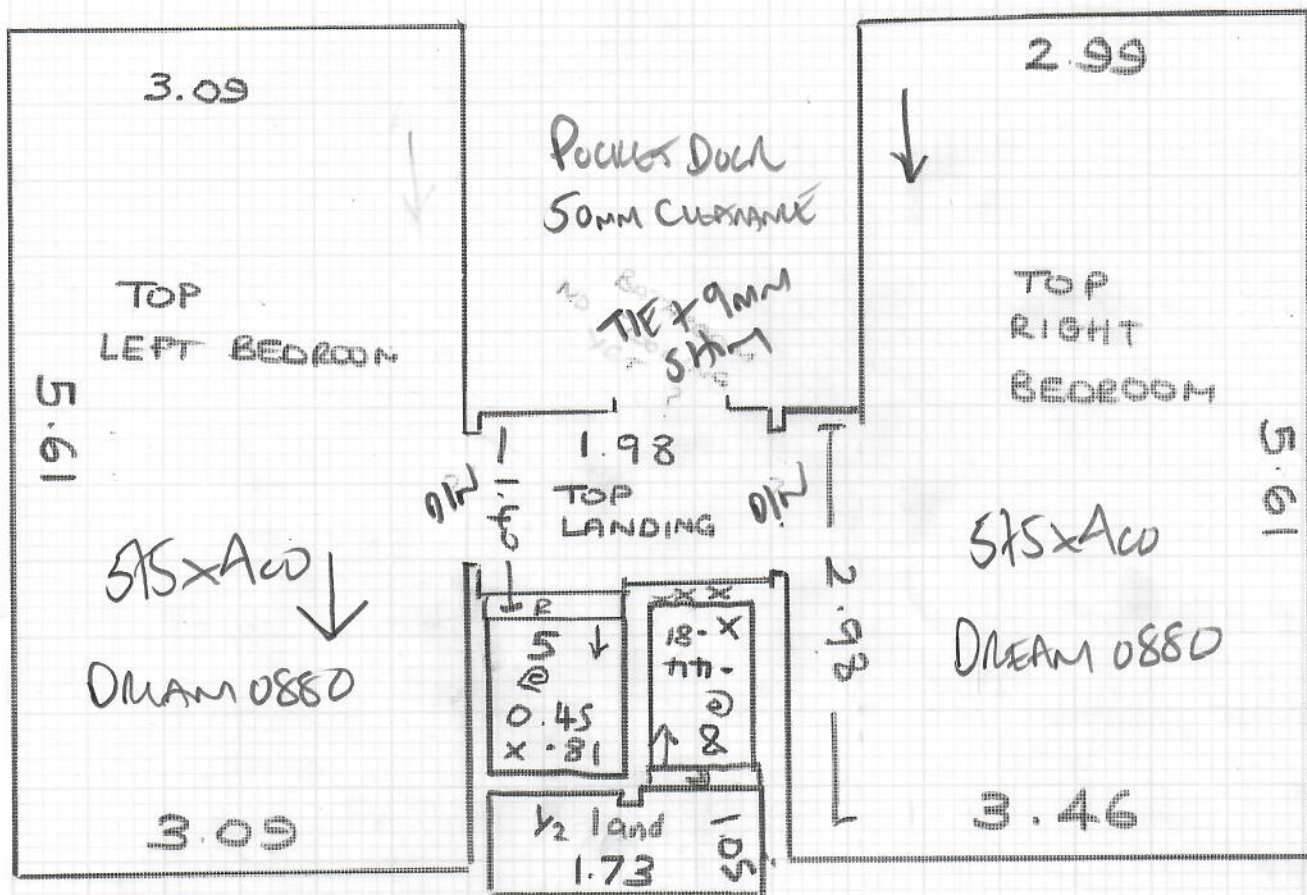 3.09
TOP
LEFT BEDROOM
5.61
575xACO
DREAM 0880
3.09
POCKET DOOR
50MM CLEARANCE
TIE + 9MM
SHIM
1.98
1.40
TOP
LANDING
D/W
D/W
R
5
@
0.45
x .81
XXX
8
@
.44
x .81
½ land
1.73
1.05
2.99
TOP
RIGHT
BEDROOM
5.61
2.98
575xACO
DREAM 0880
3.46